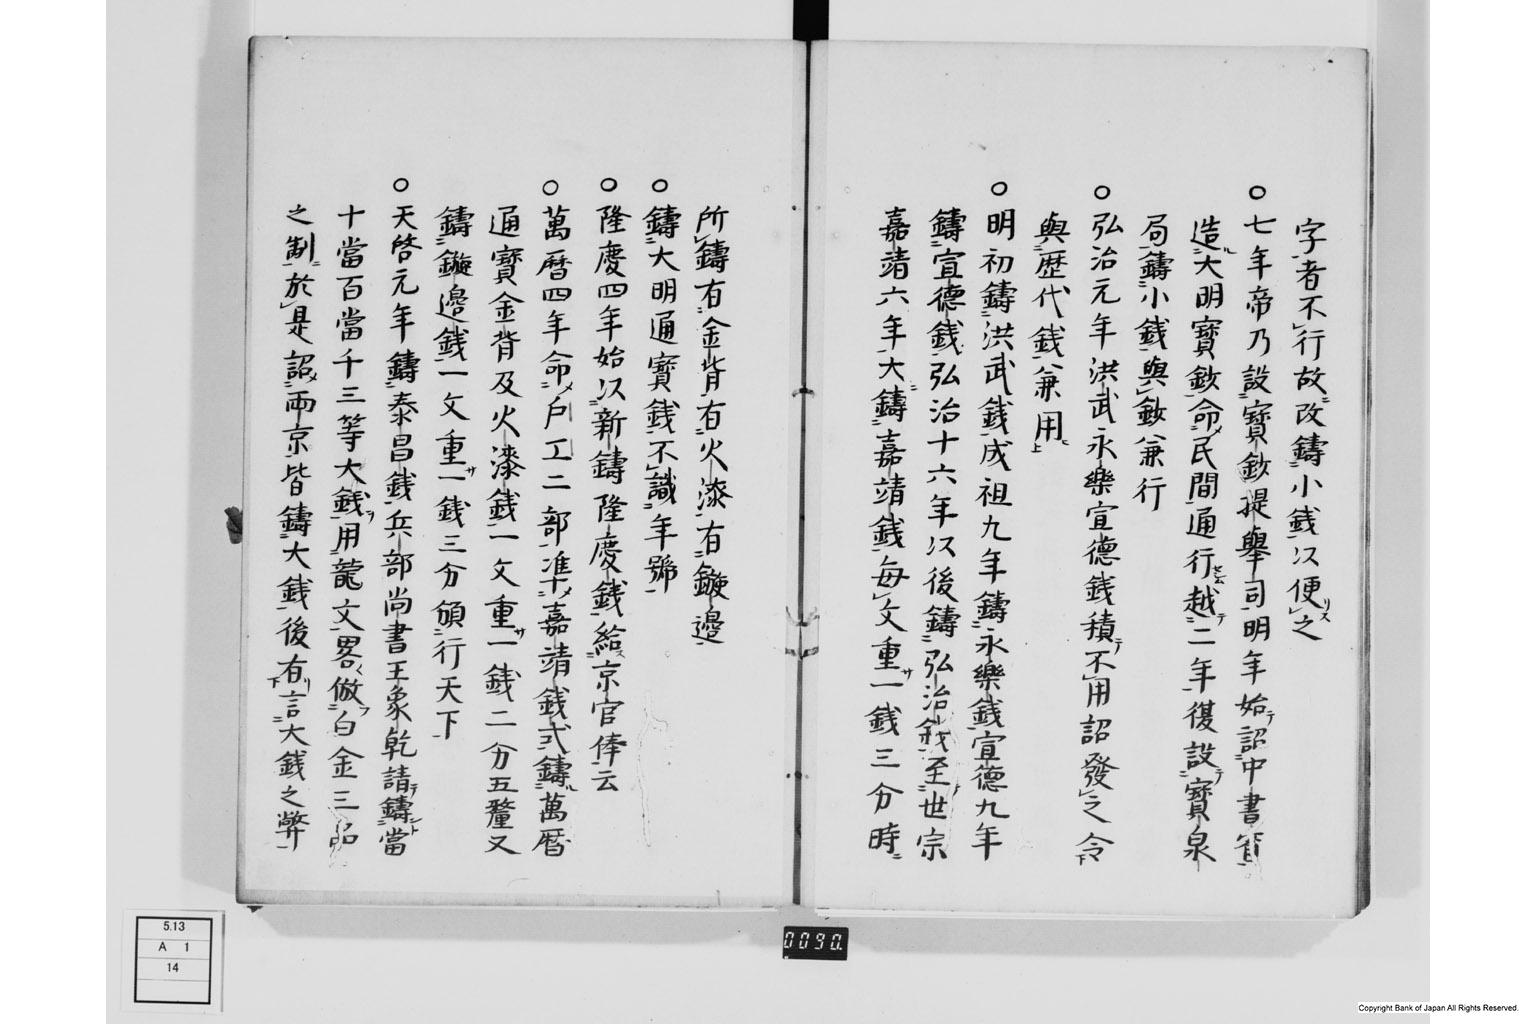 字者不行故改鑄小銭以便之
○七年帝乃設寶鈔提舉司明年始詔中書省
造大明寶鈔命民間通行越二年復設寶泉
局鑄小銭與鈔兼行
○弘治元年洪武永樂宣德銭積不用詔發之令
與歴代銭兼用
○明初鑄洪武銭成祖九年鑄永樂銭宣德九年
鑄宣德銭弘治十六年以後鑄弘治銭至世宗
嘉靖六年大鑄嘉靖銭毎文重一銭三分時
所鑄有金背有火漆有鏇邉
○鑄大明通寶銭不識年號
○隆慶四年始以新鑄隆慶銭給京官俸云
○萬暦四年命戸工二部準嘉靖銭式鑄萬暦
通寶金背及火漆銭一文重一銭二分五釐又
鑄鏇邉銭一文重一銭三分頒行天下
○天啓元年鑄泰昌銭兵部尚書王象乾請鑄當
十當百當千三等大銭用龍文畧倣白金三品
之制於是詔両京皆鑄大銭後有言大銭之弊
5.13
A 1
14
0090
Copyright Bank of Japan All Rights Reserved.